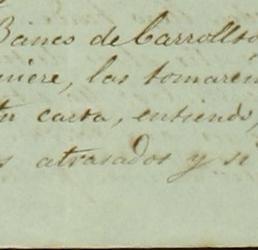 Banco de Carrollto
niere, las tomarem
tu carta, entiendo,
s atrasados y si